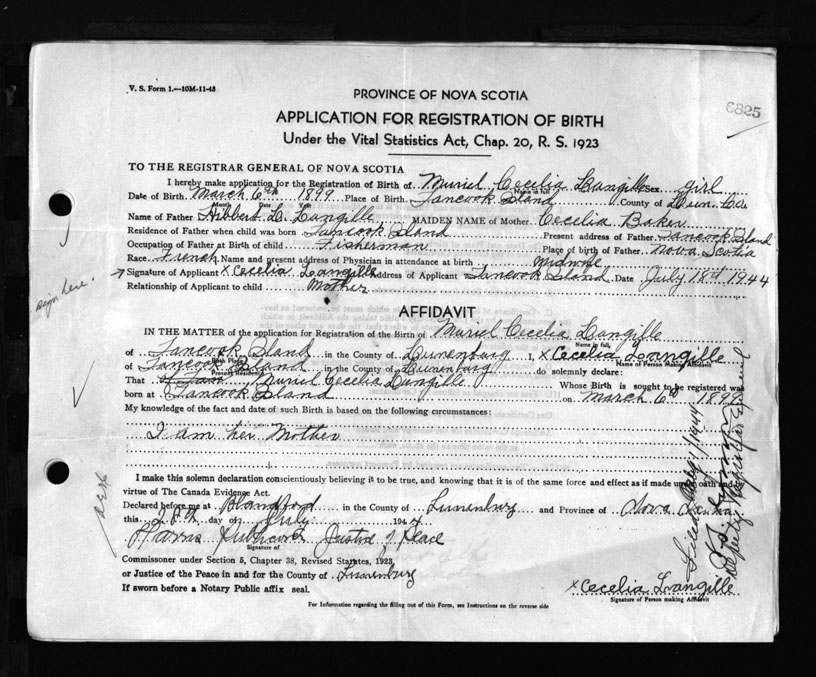 V. S. Form 1.—10M-11-43
6825
PROVINCE OF NOVA SCOTIA
APPLICATION FOR REGISTRATION OF BIRTH
Under the Vital Statistics Act, Chap. 20, R. S. 1923
TO THE REGISTRAR GENERAL OF NOVA SCOTIA
I hereby make application for the Registration of Birth of Muriel Cecelia Langille Sex girl
Name in full
Date of Birth March 6th 1899 Place of Birth Tancook Island County of Lun. Co.
Month Date Year
Name of Father Hibbert L. Langille MAIDEN NAME of Mother Cecelia Baker
Residence of Father when child was born Tancook Island Present address of Father Tancook Island
Occupation of Father at Birth of child Fisherman Place of birth of Father Nova Scotia
Race French Name and present address of Physician in attendance at birth Midwife
Signature of Applicant x Cecelia Langille Address of Applicant Tancook Island Date July 18th 1944
Relationship of Applicant to child Mother
sign here.
AFFIDAVIT
IN THE MATTER of the application for Registration of the Birth of Muriel Cecelia Langille
Name in full
of Tancook Island in the County of Lunenburg I, x Cecelia Langille
Birth Place Name of Person Making Affidavit
of Tancook Island in the County of Lunenburg do solemnly declare:
Present Residence
That Muriel Cecelia Langille Whose Birth is sought to be registered was
born at Tancook Island on March 6th 1899
My knowledge of the fact and date of such Birth is based on the following circumstances:
I am her Mother
I make this solemn declaration conscientiously believing it to be true, and knowing that it is of the same force and effect as if made under oath and by
virtue of The Canada Evidence Act.
Declared before me at Blandford in the County of Lunenburg and Province of Nova Scotia
this 28th day of July 1944
Publicover Justice of Peace
Signature of
Commissoner under Section 5, Chapter 38, Revised Statutes, 1923
or Justice of the Peace in and for the County of Lunenburg
If sworn before a Notary Public affix seal.
x Cecelia Langille
Signature of Person making Affidavit
For Information regarding the filling out of this Form, see Instructions on the reverse side
Filed Aug 1/1944
Deputy Registrar General